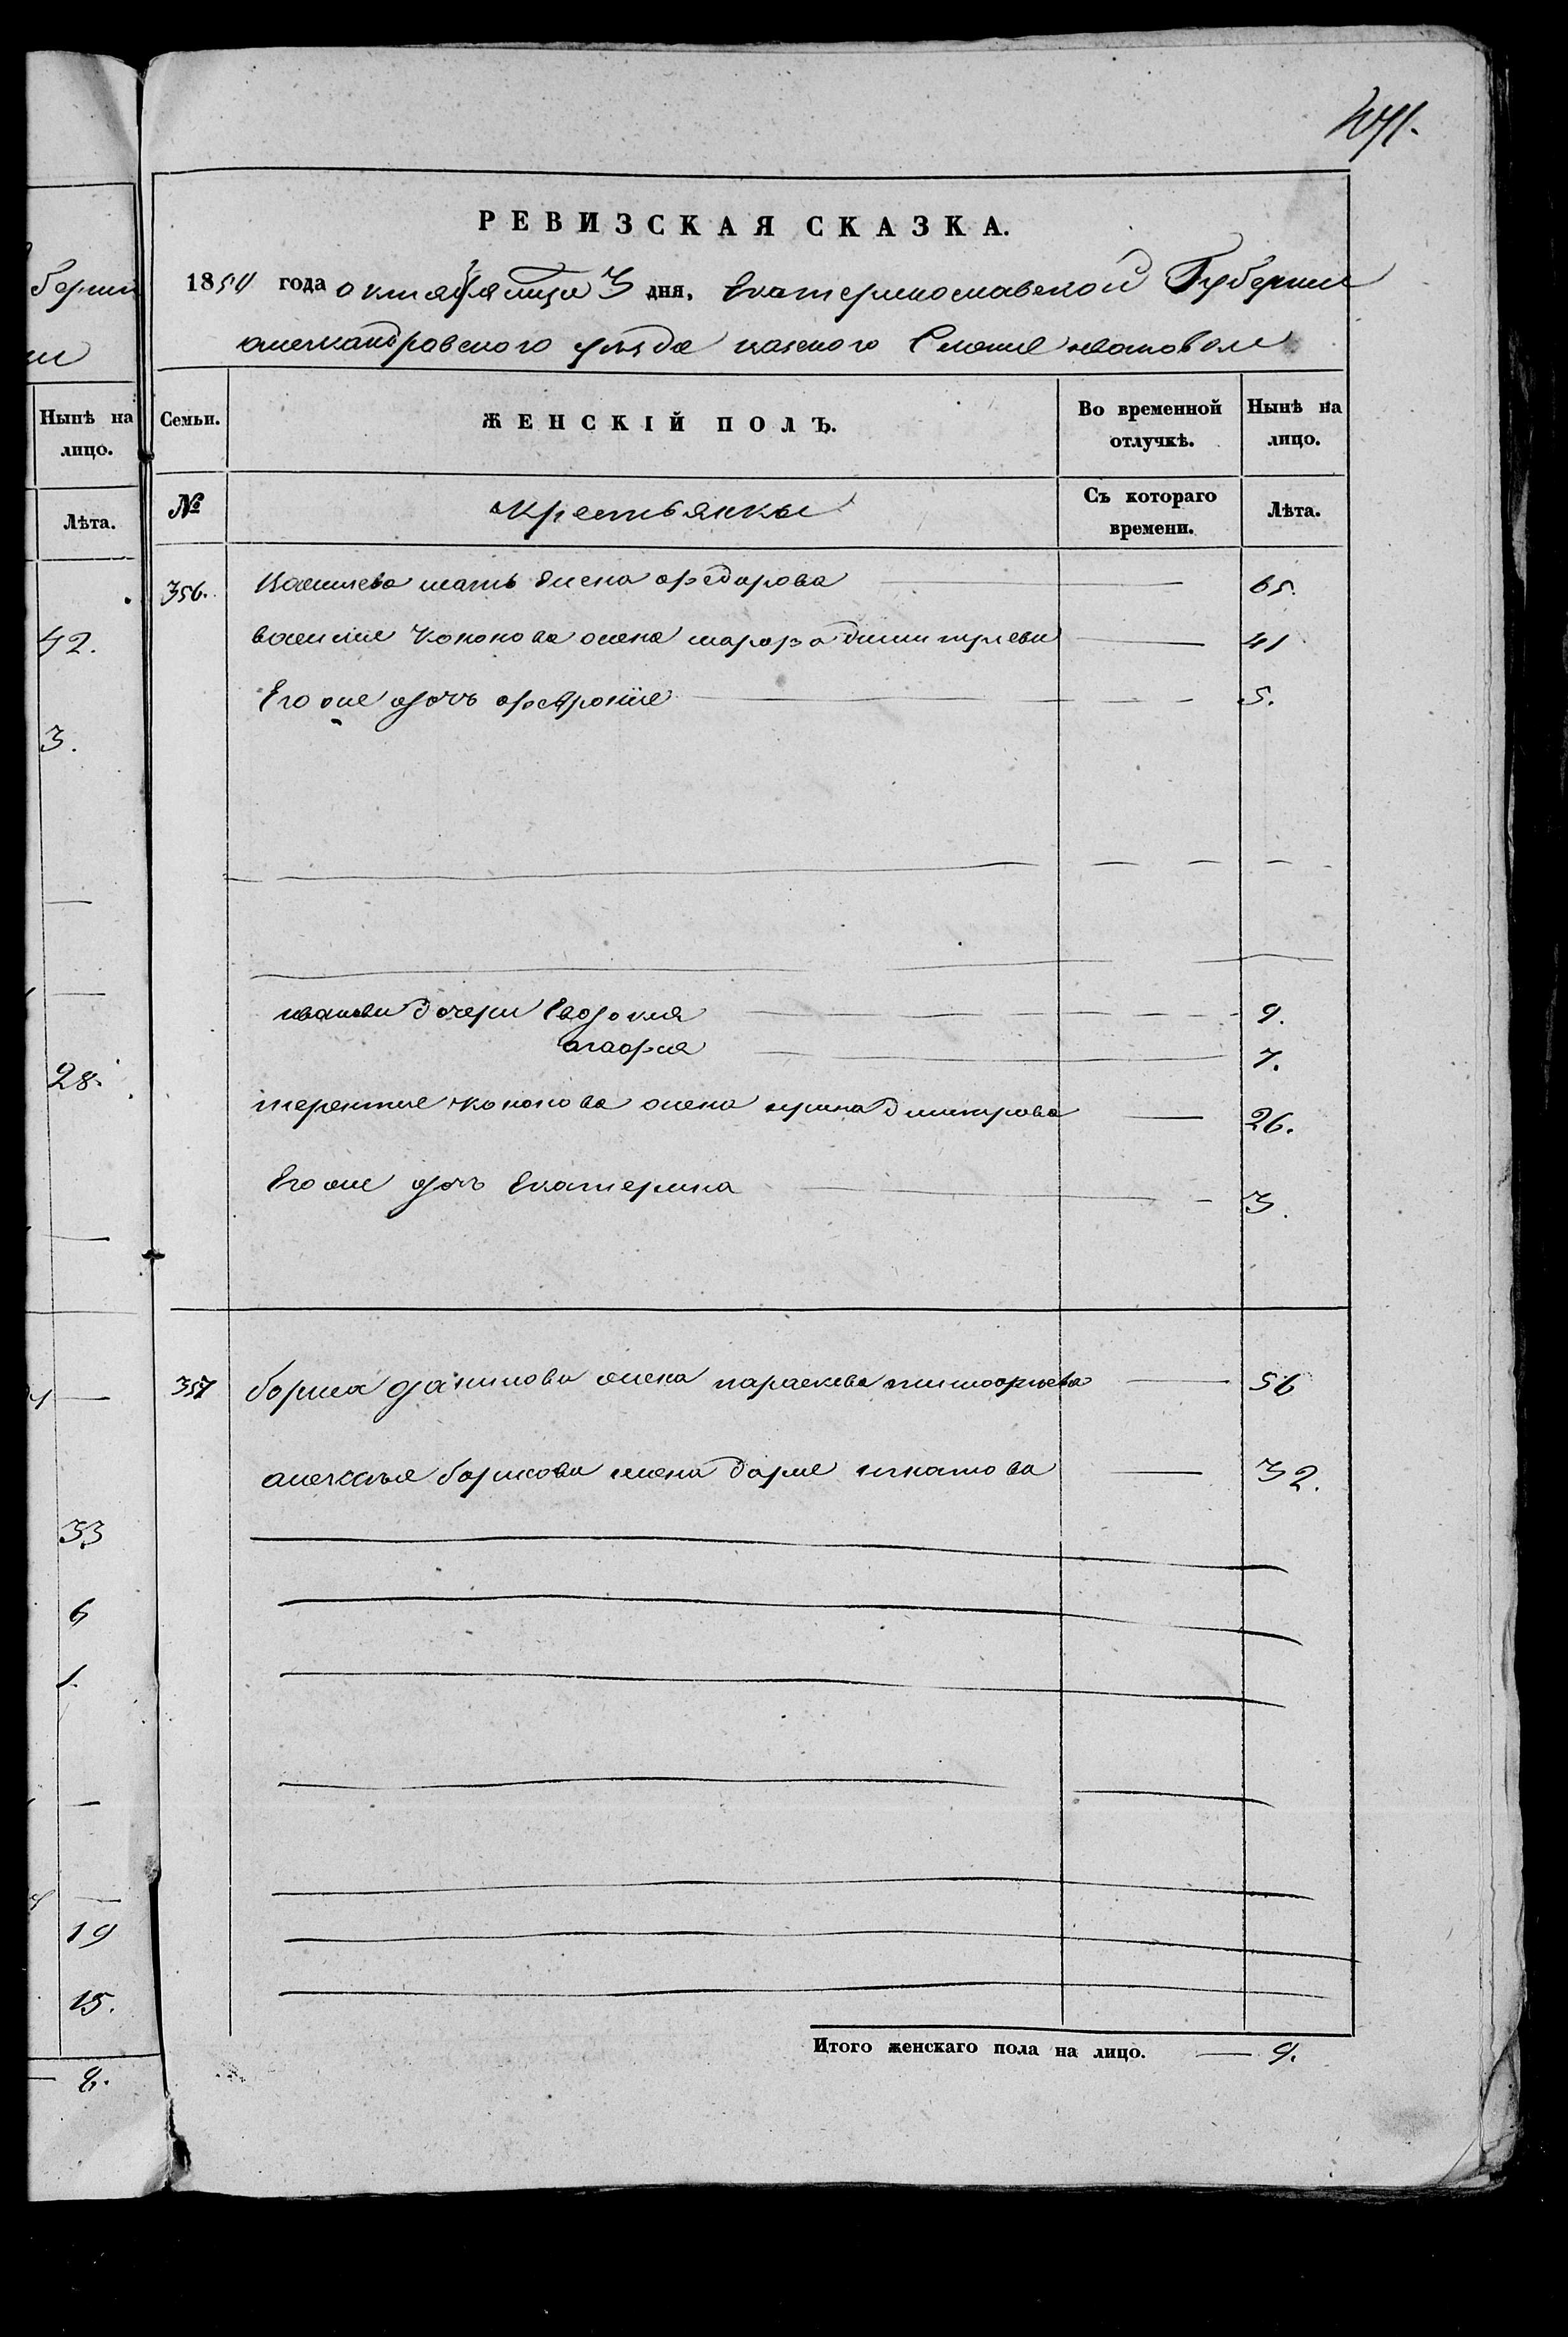 берніи
ии
Нынѣ на
лицо.
Лѣта.
42.
3.
28.
33
6
1.
19
15.
8.
РЕВИЗСКАЯ СКАЗКА.
1850 года октября мца 3 дня, Екатеринославской Губерніи
александровского уезда казеного Селеніе
Семьи. ЖЕНСКІЙ ПОЛЪ. Во временной отлучкѣ. Нынѣ на лицо.
№ крестьянки Съ котораго времени. Лѣта.
356. Васильева мать Елена федорова 65.
василие Кононова жена марфа димитриева 41
Его же дочь февроние 5.
иванови дочери Евдокия 9.
агафия 7.
терентие кононова жена ирина димитрова 26.
Его же дочь Екатерина 3.
357 бориса данилова жена параскева тимофиева 56
алексея борисова жена дарие игнатова 32.
Итого женскаго пола на лицо. 9.